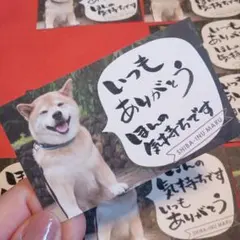 いつも
ありがとう
ほんの
気持ちです
SHIBA-INU MARU
ほんの
気持ちです
いつも
ありがとう
SHIBA-INU MARU